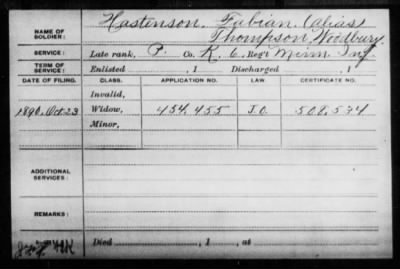 NAME OF SOLDIER: Hastenson, Fabian (alias)
Thompson, Woodbury.
SERVICE: Late rank, P. Co. K, 6 Reg't Minn Inf
TERM OF SERVICE: Enlisted , 1 Discharged , 1
DATE OF FILING. CLASS. APPLICATION NO. LAW. CERTIFICATE NO.
Invalid,
1890, Oct 23 Widow, 454,455 J.O. 508,534
Minor,
ADDITIONAL SERVICES:
REMARKS:
Died , 1 , at